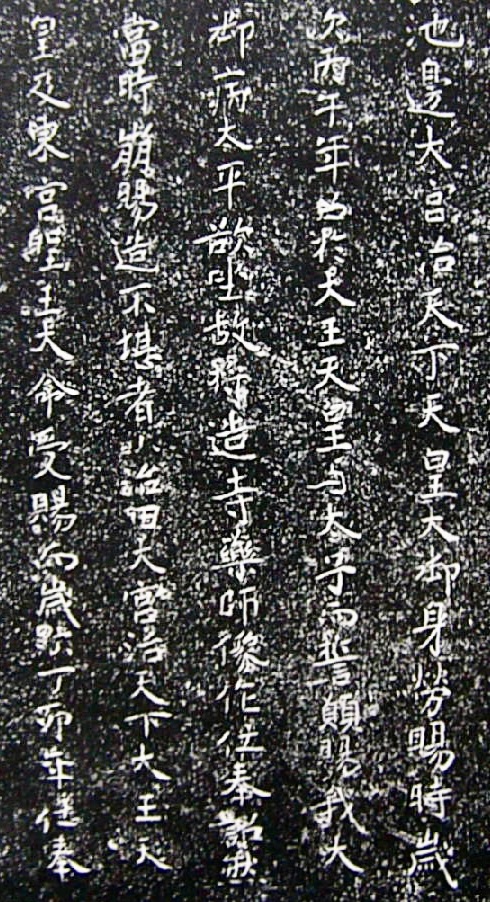 池邊大宮治天下天皇大御身勞賜時歲
次丙午年召於大王天皇与太子而誓願賜我大
御病太平欲坐故将造寺藥師像作仕奉詔然
當時崩賜造不堪者小治田大宮治天下大王天
皇及東宮聖王大命受賜而歲次丁卯年仕奉